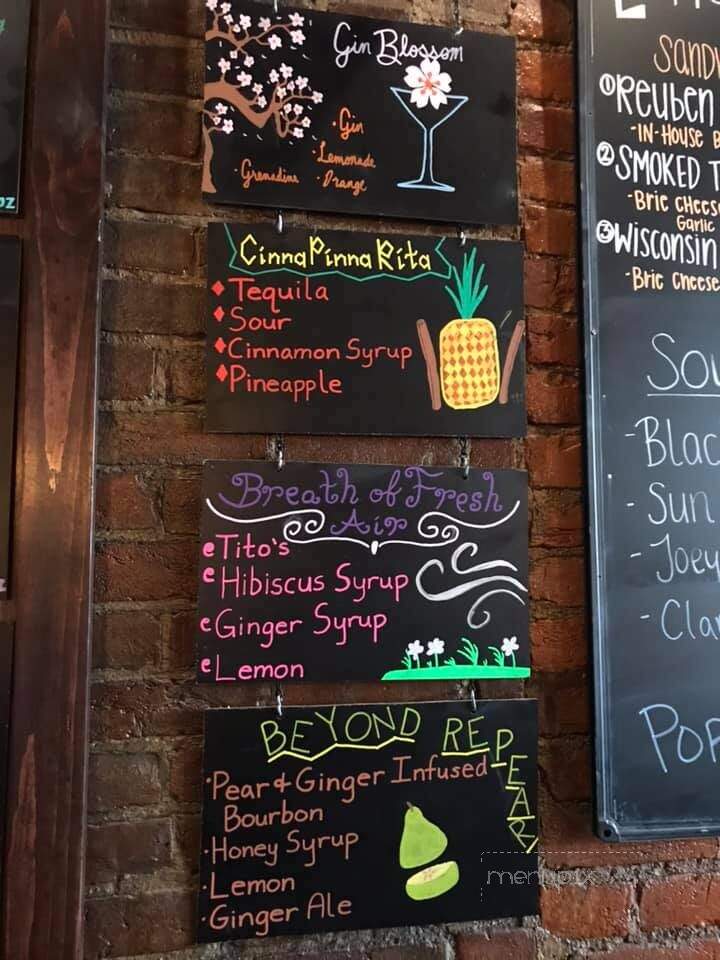 Gin Blossom
• Gin
• Lemonade
• Grenadine • Orange
CinnaPinnaRita
♦Tequila
♦Sour
♦Cinnamon Syrup
♦Pineapple
Breath of Fresh
Air
Tito's
Hibiscus Syrup
Ginger Syrup
Lemon
BEYOND REPEAR
•Pear & Ginger Infused
Bourbon
•Honey Syrup
•Lemon
•Ginger Ale
①Reuben
-IN-HOUSE
②SMOKED
-Brie cheese
Garlic
③Wisconsin
-Brie cheese
-Sun
-Joey